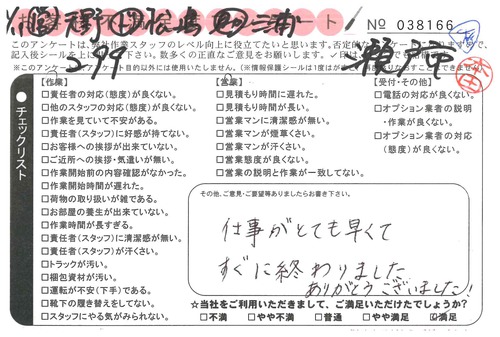 № 038166
このアンケートは、弊社作業スタッフのレベル向上に役立てたいと思います。否定的な
記入後シールを 下さい。数多くの正直なご意見をお願いします。
※このアンケートは、アンケート目的以外には使用いたしません。
チェックリスト
【作業】
□責任者の対応(態度)が良くない。
□他のスタッフの対応(態度)が良くない。
□作業を見ていて不安がある。
□責任者(スタッフ)に好感が持てない。
□お客様への挨拶が出来ていない。
□ご近所への挨拶・気遣いが無い。
□作業開始前の内容確認がなかった。
□作業開始時間が遅れた。
□荷物の取り扱いが雑である。
□お部屋の養生が出来ていない。
□作業時間が長すぎる。
□責任者(スタッフ)に清潔感が無い。
□責任者(スタッフ)が汗くさい。
□トラックが汚い。
□梱包資材が汚い。
□運転が不安(下手)である。
□靴下の履き替えをしてない。
□スタッフにやる気がみられない。
【営業】
□見積もり時間に遅れた。
□見積もり時間が長い。
□営業マンに清潔感が無い。
□営業マンが煙草くさい。
□営業マンが汗くさい。
□営業態度が良くない。
□営業の説明と作業が一致してない。
【受付・その他】
□電話の対応が良くない。
□オプション業者の説明
・作業が良くない。
□オプション業者の対応
(態度)が良くない。
その他、ご意見・ご要望等ありましたらお書き下さい。
仕事がとても早くて
すぐに終わりました
ありがとうございました!
☆当社をご利用いただきまして、ご満足いただけたでしょうか?
□不満 □やや不満 □普通 □やや満足 ☑満足